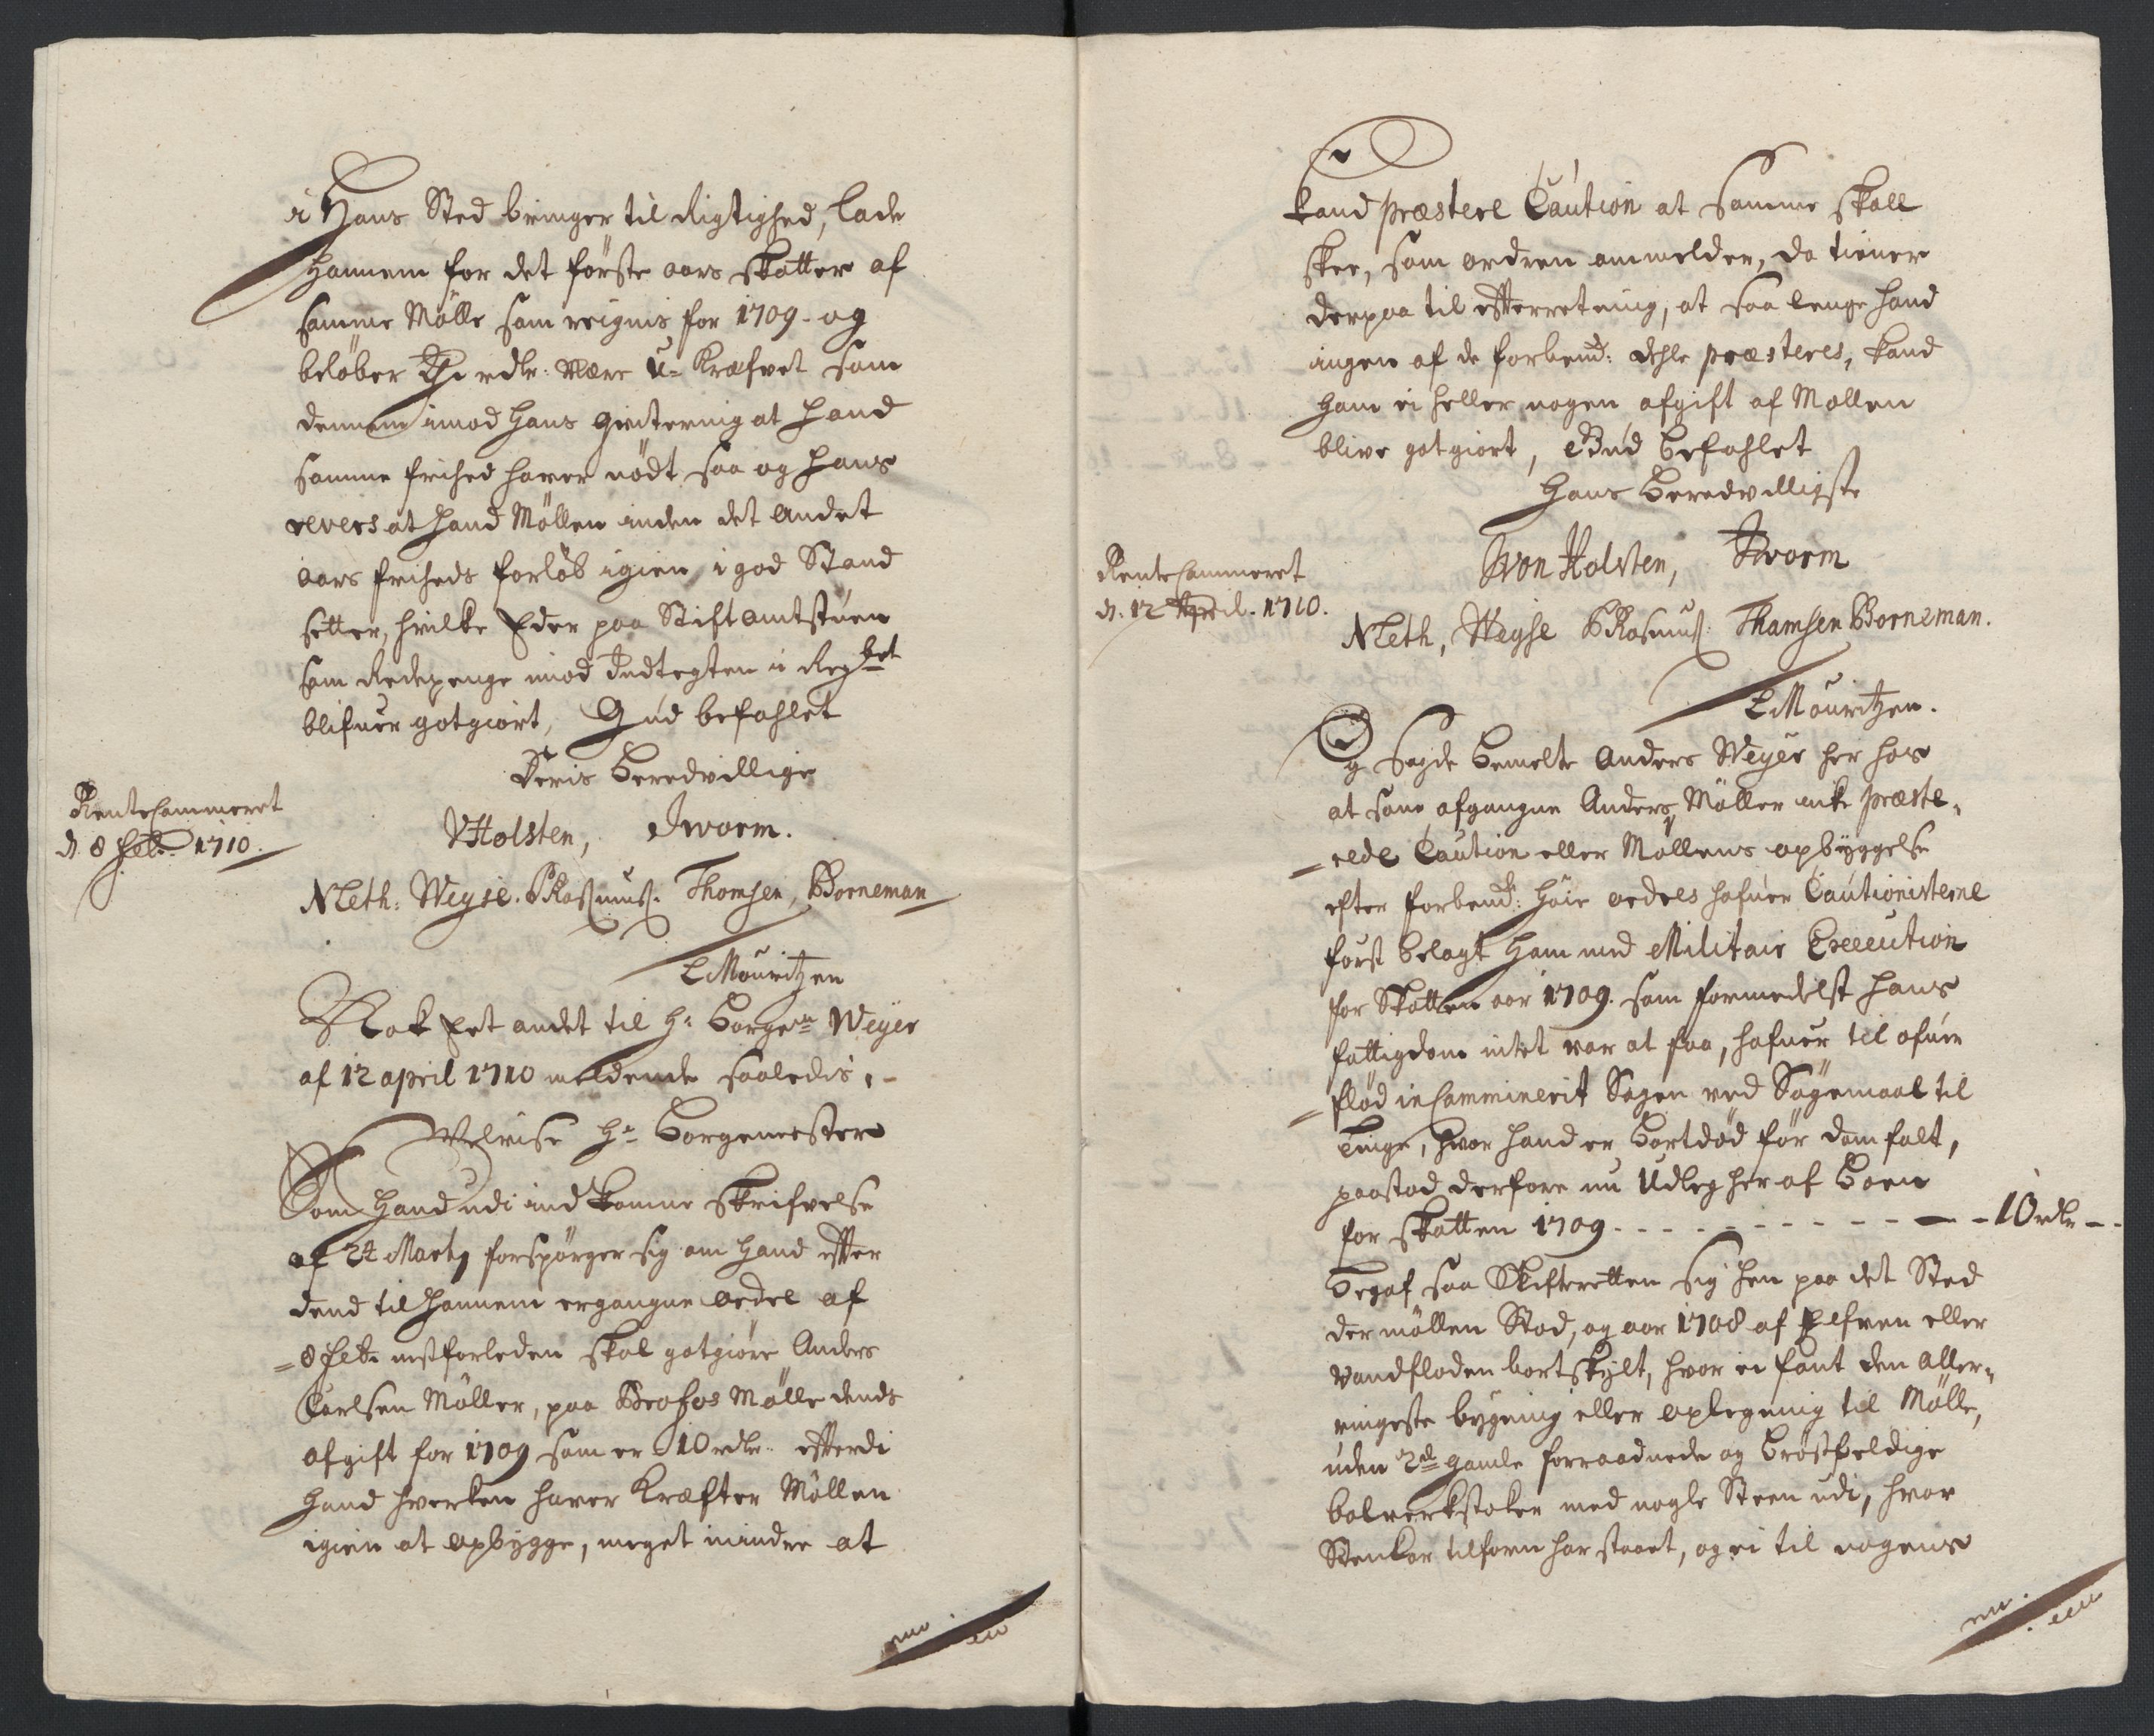 i Hans Sted bringer til Rigtighed, lade
hannem for det förste aars skatter af
samme Mölle som reignis for 1709. og
beløber Thi rdlr: Være U-Kræfvet som
dennem imod Hans qvitering at hand
samme frihed haver nödt saa og hans
revers at hand Möllen inden det andet
aars friheds forløb igien i god Stand
setter, hvilke Eder paa Stiftamtstuen
som Redepenge imod Indtegten i Regbet
blifuer gotgiort, Gud befahlet
Deris Beredvillige
RenteCammeret
d. 8 Febr. 1710.
VHolsten, Jworm.
NLeth: Weyse. PRasmuss. Thomsen, Borneman
LMouritzen
Nok Eet andet til Hr Borgem Weyer
af 12 april 1710 meldende saaledis,
Velvise Hr Borgemester
Som Hand udi ind komne skrifvelse
af 24 Marty forspörger sig om hand efter
dend til hannem ergangne ordre af
8 Febr nestforleden skal gotgiöre Anders
Carlsen Möller, paa Brofos Mölle dends
afgift for 1709 som er 10 rdlr. efterdi
hand hverken haver Kræfter Möllen
igien at opbygge, meget mindre at
kand præstere Caution at samme skall
skee, som ordren ommelder, da tiener
derpaa til efterretning, at saa lenge hand
ingen af de forbend: dehle præsteres, kand
ham ei heller nogen afgift af Møllen
blive gotgiort, Gud befahlet
Hans Beredvilligste
RenteCammeret
d. 12 April. 1710.
von Holsten, Jworm
NLeth, Weyse PRasmuss: Thamsen Borneman.
LMouritzen.
Og sagde bemelte Anders Weyer her hos
at som afgangne Anders Möller icke præste-
rede Caution eller Møllens opbyggelse
efter forbend: höie ordres hafuer Cautionisterne
først belagt ham med Militair Execution
for Skatten aar 1709. som formedelst hans
fattigdom intet var at faa, hafuer til ofuer
flød inCammineret Sagen ved Søgemaal til
tinge, hvor hand er bortdød før dom falt,
paastod derfore nu Udleg her af Boen
for skatten 1709 - - - - - - - - 10 rdlr - -
Begaf saa Skifteretten sig hen paa det Sted
der möllen Stod, og aar 1708 af Elfven eller
vandfloden bortskylt, hvor ei fant den aller-
ringeste bygning eller oplegning til Mölle,
uden 2de gamle forraadnede og bröstfeldige
bolverkstoker med nogle Steen udi, hvor
Stenkar tilforn har staaet, og ei til nogens